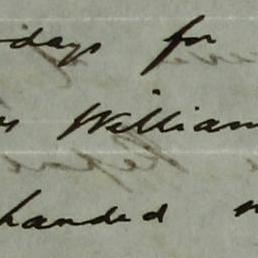 days for
William
handed